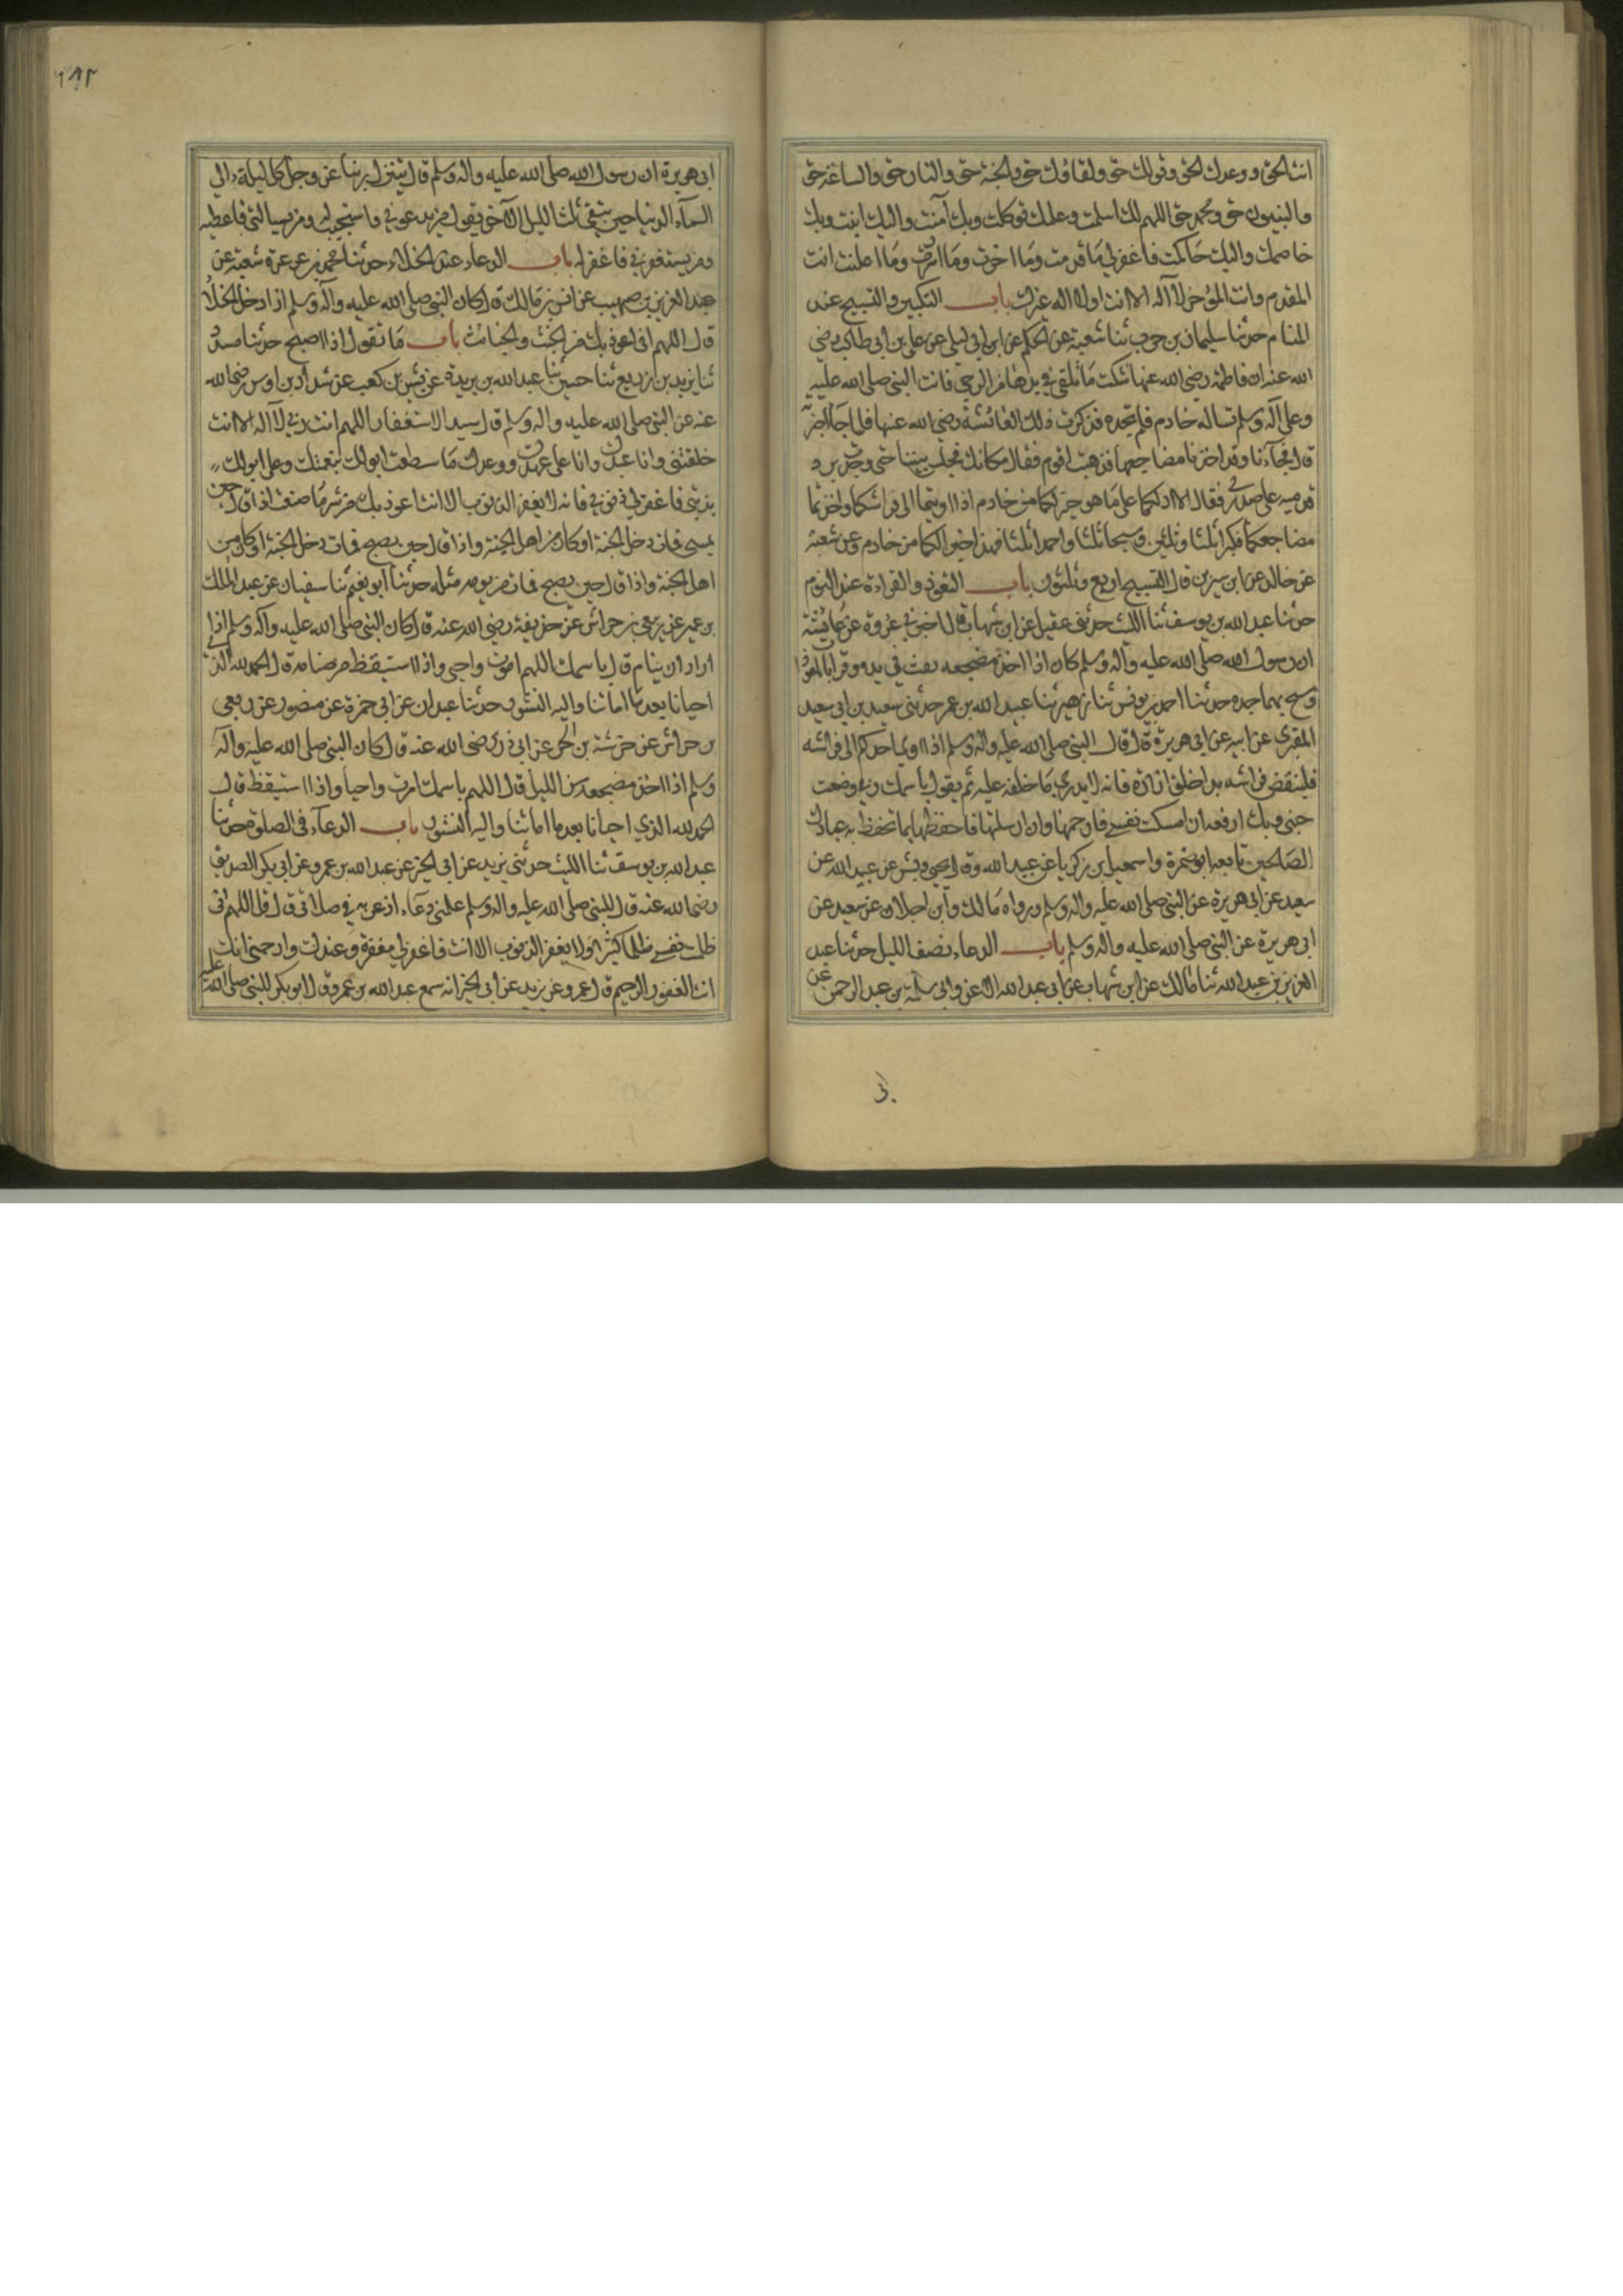 انت الحق ووعدك الحق وقولك حق ولقاؤك حق والجنة حق والنار حق والساعة حق
والنبيون حق ومحمد حق اللهم لك اسلمت وعليك توكلت وبك آمنت واليك انبت وبك
خاصمت واليك حاكمت فاغفر لي ما قدمت وما اخرت وما اسررت وما اعلنت انت
المقدم وانت المؤخر لا آله الا انت اولا اله غيرك باب التكبير والتسبيح عند
المنام حدثنا سليمان بن حرب ثنا شعبة عن الحكم عن ابن ابي ليلى عن علي بن ابي طالب رضي
الله عنه ان فاطمة رضي الله عنها شكت ما تلقى في يدها من الرحى فاتت النبي صلى الله عليه
وعلى آله وسلم تساله خادم فلم تجده فذكرت ذلك لعائشة رضي الله عنها فلما جاء اخبرته
قال فجآءنا وقد اخذنا مضاجعنا فذهبت اقوم فقال مكانك فجلس بيننا حتى وجدت برد
قدميه على صدري فقال الا ادلكما على ما هو خير لكما من خادم اذا اويتما الى فراشكما واخذتما
مضاجعكما فكبرا ثلثا وثلثين وسبحا ثلثا واحمدا ثلثا فهذا خير لكما من خادم وعن شعبة
عن خالد عن ابن سيرين قال التسبيح اربع وثلثون باب التعوذ والقراءة عند النوم
حدثنا عبد الله بن يوسف ثنا الليث حدثني عقيل عن ابن شهاب قال اخبرني عروة عن عائشة
ان رسول الله صلى الله عليه وآله وسلم كان اذا اخذ مضجعه نفث في يده وقرا بالمعوذات
ومسح بهما جسده حدثنا احمد بن يونس ثنا زهير ثنا عبيد الله بن عمر حدثني سعيد بن ابي سعيد
المقبري عن ابيه عن ابي هريرة قال قال النبي صلى الله عليه وآله وسلم اذا اوى احدكم الى فراشه
فلينفض فراشه بداخلة ازاره فانه لا يدري ما خلفه عليه ثم يقول باسمك ربي وضعت
جنبي وبك ارفعه ان امسكت نفسي فارحمها وان ارسلتها فاحفظها بما تحفظ به عبادك
الصالحين تابعه ابو ضمرة واسمعيل بن زكريا عن عبيد الله وقال يحيى وبشر عن عبيد الله عن
سعيد عن ابي هريرة عن النبي صلى الله عليه وآله وسلم ورواه مالك وابن عجلان عن سعيد عن
ابي هريرة عن النبي صلى الله عليه وآله وسلم باب الدعاء نصف الليل حدثنا عبد
العزيز بن عبد الله ثنا مالك عن ابن شهاب عن ابي عبد الله الاغر وابي سلمة بن عبد الرحمن عن
ابي هريرة ان رسول الله صلى الله عليه وآله وسلم قال يتنزل ربنا عز وجل كل ليلة الى
السمآء الدنيا حين يبقى ثلث الليل الآخر يقول من يدعوني فاستجيب له ومن يسالني فاعطيه
ومن يستغفرني فاغفر له باب الدعاء عند الخلاء حدثنا محمد بن عرعرة شعبة عن
عبد العزيز بن صهيب عن انس بن مالك قال كان النبي صلى الله عليه وآله وسلم اذا دخل الخلاء
قال اللهم اني اعوذ بك من الخبث والخبائث باب ما تقول اذا اصبح حدثنا مسدد
ثنا يزيد بن زريع ثنا حسين ثنا عبد الله بن بريدة عن بشير بن كعب عن شداد بن اوس رضي الله
عنه عن النبي صلى الله عليه وآله وسلم قال سيد الاستغفار اللهم انت ربي لا آله الا انت
خلقتني وانا عبدك وانا على عهدك ووعدك ما استطعت ابو لك بنعمتك وعلي ابو لك
بذنبي فاغفر لي ذنوبي فانه لا يغفر الذنوب الا انت اعوذ بك من شر ما صنعت اذا قال حين
يمسي فمات دخل الجنة او كان من اهل الجنة واذا قال حين يصبح فمات دخل الجنة او كان من
اهل الجنة واذا قال حين يصبح فمات من يومه مثله حدثنا ابو نعيم ثنا سفيان عن عبد الملك
بن عمير عن ربعي بن حراش عن حذيفة رضي الله عنه قال كان النبي صلى الله عليه وآله وسلم اذا
اراد ان ينام قال باسمك اللهم اموت واحيى واذا استيقظ من منامه قال الحمد لله الذي
احيانا بعد ما اماتنا واليه النشور حدثنا عبدان عن ابي حمزة عن منصور عن ربعي
بن حراش عن خرشة بن الحر عن ابي ذر رضي الله عنه قال كان النبي صلى الله عليه وآله
وسلم اذا اخذ مضجعه من الليل قال اللهم باسمك اموت واحيا واذا استيقظ قال
الحمد لله الذي احيانا بعد ما اماتنا واليه النشور باب الدعآء في الصلوة حدثنا
عبد الله بن يوسف ثنا الليث حدثني يزيد عن ابي الخير عن عبد الله بن عمرو عن ابي بكر الصديق
رضي الله عنه قال للنبي صلى الله عليه وآله وسلم علمني دعاء ادعو به في صلاتي قال قل اللهم اني
ظلمت نفسي ظلما كثيرا ولا يغفر الذنوب الا انت فاغفر لي مغفرة من عندك وارحمني انك
انت الغفور الرحيم قال عمرو عن يزيد عن ابي الخير انه سمع عبد الله بن عمرو قال ابو بكر للنبي صلى الله عليه